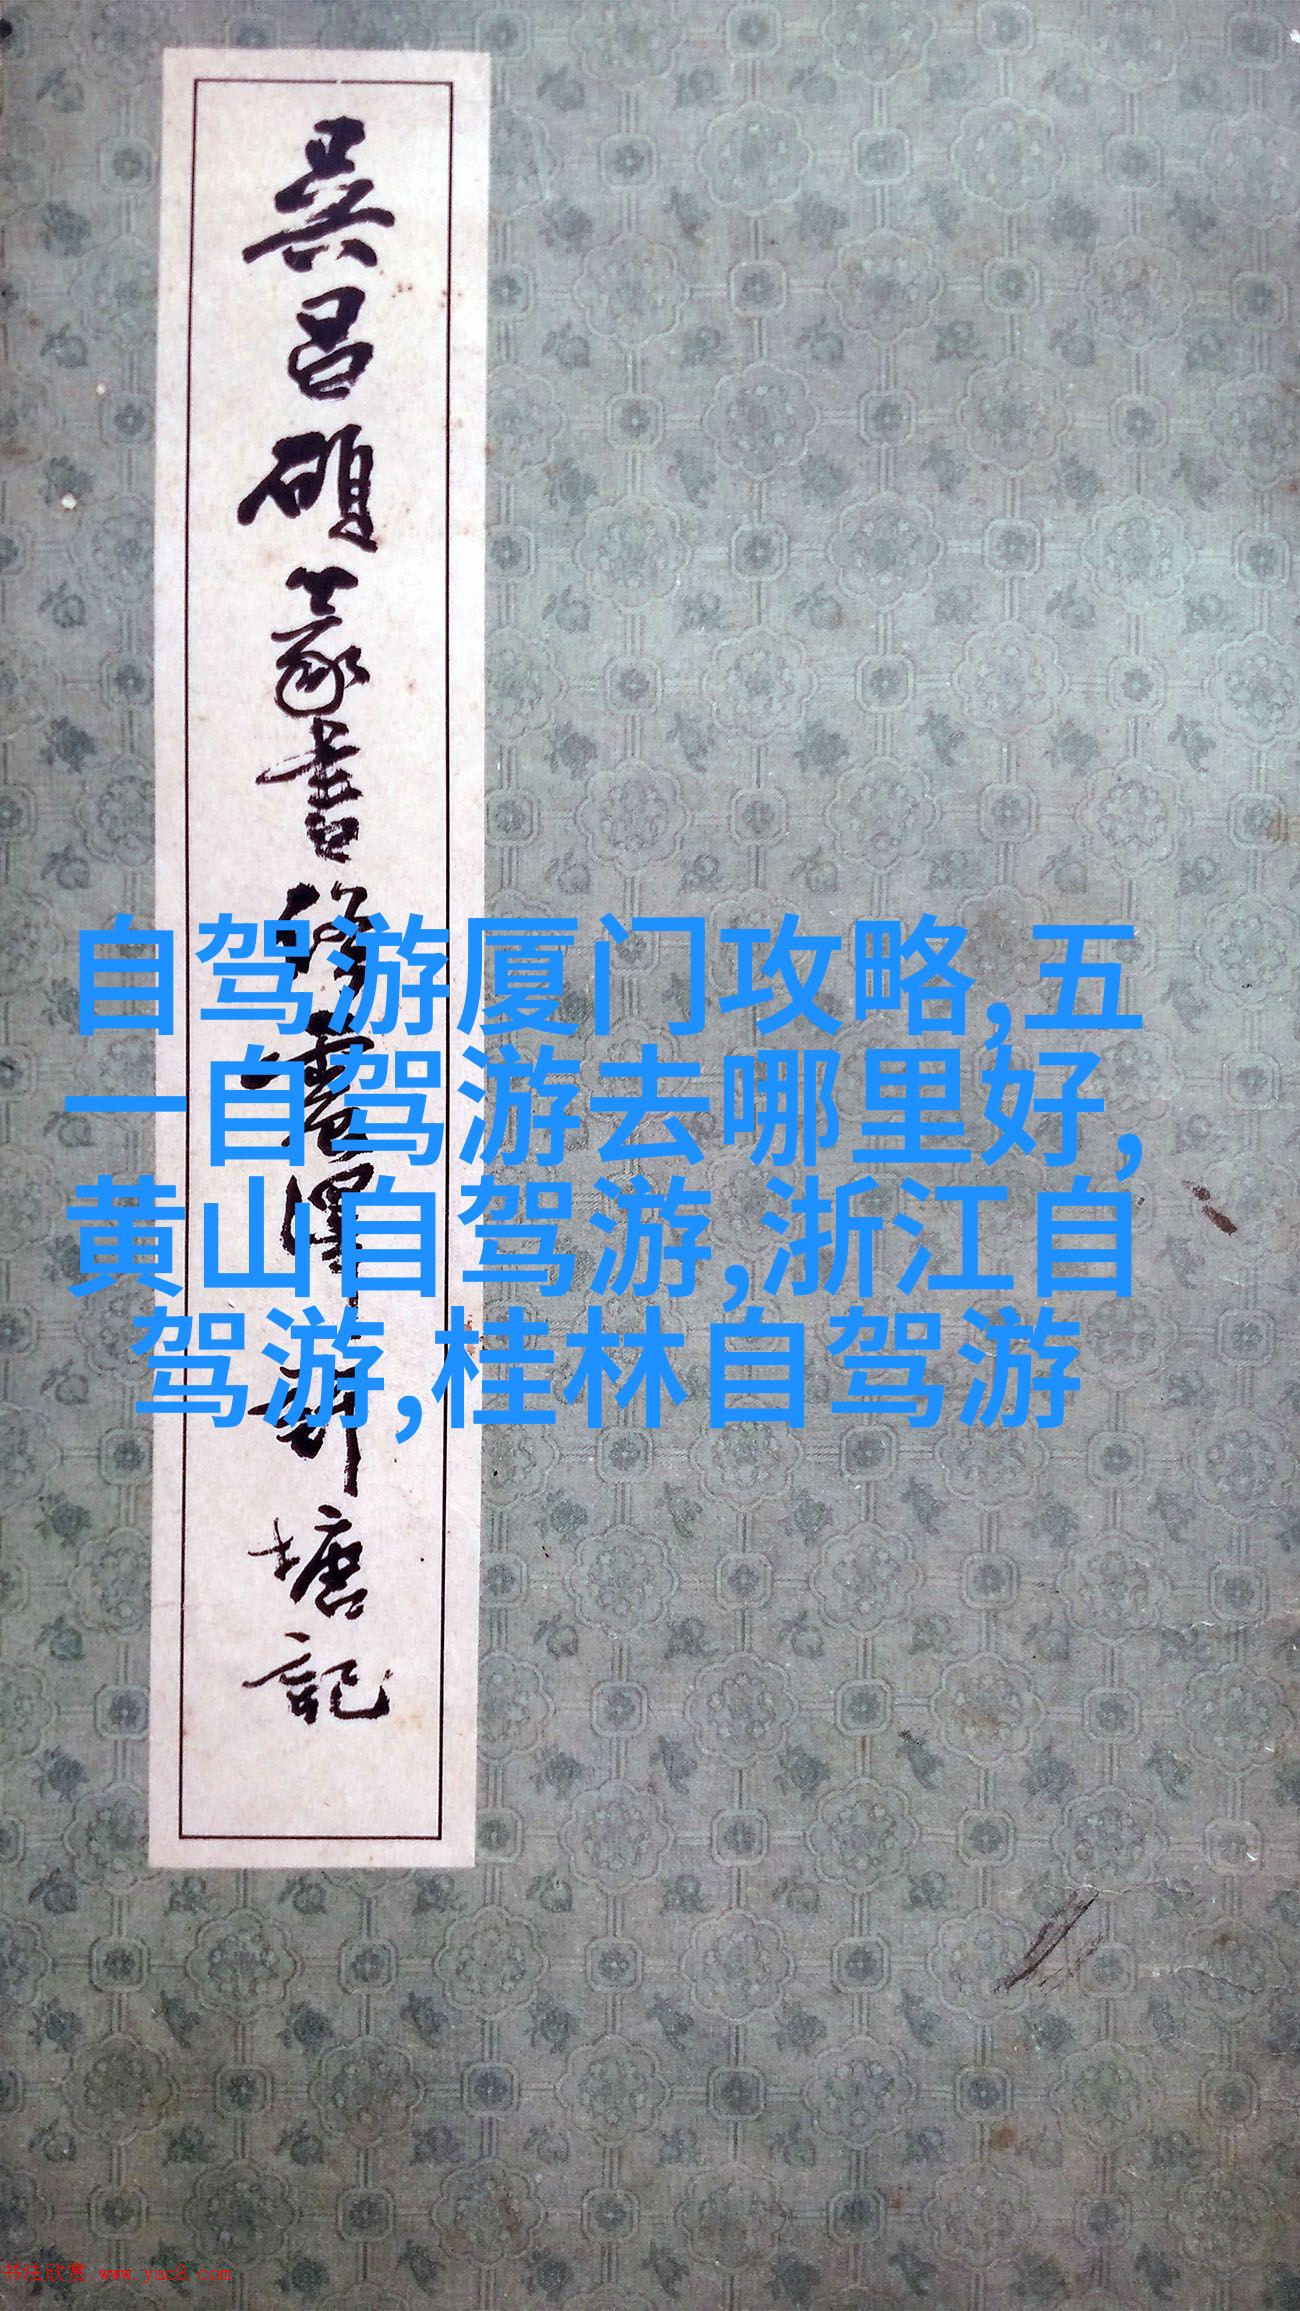 吴昌硕篆书修震泽许塘記
自驾游厦门攻略,五
一自驾游去哪里好,
黄山自驾游,浙江自
驾游,桂林自驾游
书法欣赏 www.yac8.com